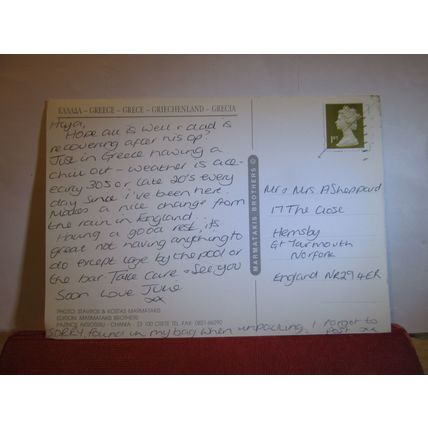 ΕΛΛΑΔΑ - GREECE - GRECE - GRIECHENLAND - GRECIA
Hiya,
Hope all is well & dad is
recovering after his op?
Just in Greece having a
chill out - weather is ace -
early 30s or late 20's every
day since i've been here.
Makes a nice change from
the rain in England.
Having a good rest, it's
great not having anything to
do except laze by the pool or
the bar. Take Care + See you
Soon Love June
xx
PHOTO: STAVROS & KOSTAS MARMATAKIS
EDITION: MARMATAKIS BROTHERS
CHANIA - 73 100 CRETE TEL. FAX: 0821-66290
SORRY, found in my bag when unpacking. I forgot to
post xx
MARMATAKIS BROTHERS ©
1st
Mr & Mrs A Sheppard
17 The Close
Hemsby
Gt Yarmouth
Norfolk
England NR29 4ER